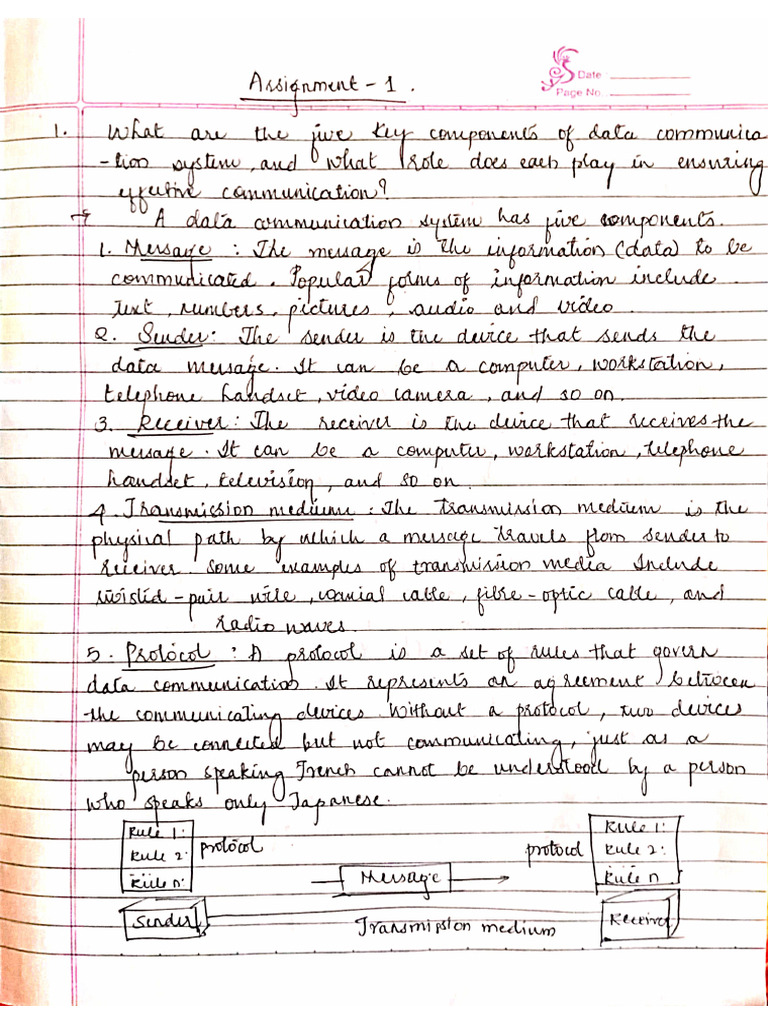 Date
Page No.
Assignment - 1.
1. What are the five key components of data communica
-tion system, and what role does each play in ensuring
effective communication?
→ A data communication system has five components.
1. Message : The message is the information (data) to be
communicated. Popular forms of information include
text, numbers, pictures, audio and video.
2. Sender: The sender is the device that sends the
data message. It can be a computer, workstation,
telephone handset, video camera, and so on.
3. Receiver: The receiver is the device that receives the
message. It can be a computer, workstation, telephone
handset, television, and so on.
4. Transmission medium: The transmission medium is the
physical path by which a message travels from sender to
receiver. Some examples of transmission media Include
twisted-pair wire, coaxial cable, fibre-optic cable, and
radio waves.
5. Protocol : A protocol is a set of rules that govern
data communication. It represents an agreement between
the communicating devices. Without a protocol, two devices
may be connected but not communicating, just as a
person speaking French cannot be understood by a person
who speaks only Japanese.
Rule 1: Rule 1:
Rule 2: protocol protocol Rule 2:
Rule n: Message Rule n
Sender Transmission medium Receiver